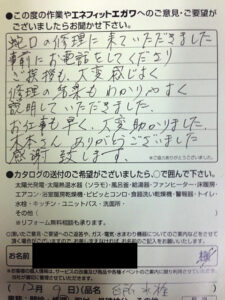 ●この度の作業やエネフィットエガワへのご意見・ご要望が
ございましたらお聞かせ下さい。
蛇口の修理に来ていただきました
事前にお電話をしてくださり
ご挨拶も、大変感じよく
修理の結果もわかりやすく
説明していただきました。
お仕事も早く、大変助かりました。
ありがとうございました
感謝致します。
※ご協力ありがとうございました。
●カタログの送付のご希望がございましたら、○で囲んで下さい。
太陽光発電・太陽熱温水器（ソラモ）・風呂釜・給湯器・ファンヒーター・床暖房・
エアコン・浴室暖房乾燥機・ピピッとコンロ・食器洗い乾燥機・警報器・トイレ・
水栓・キッチン・ユニットバス・洗面所・
その他（
※リフォーム無料相談も承ります。
お名前
12月 9日）（品名 台所水栓